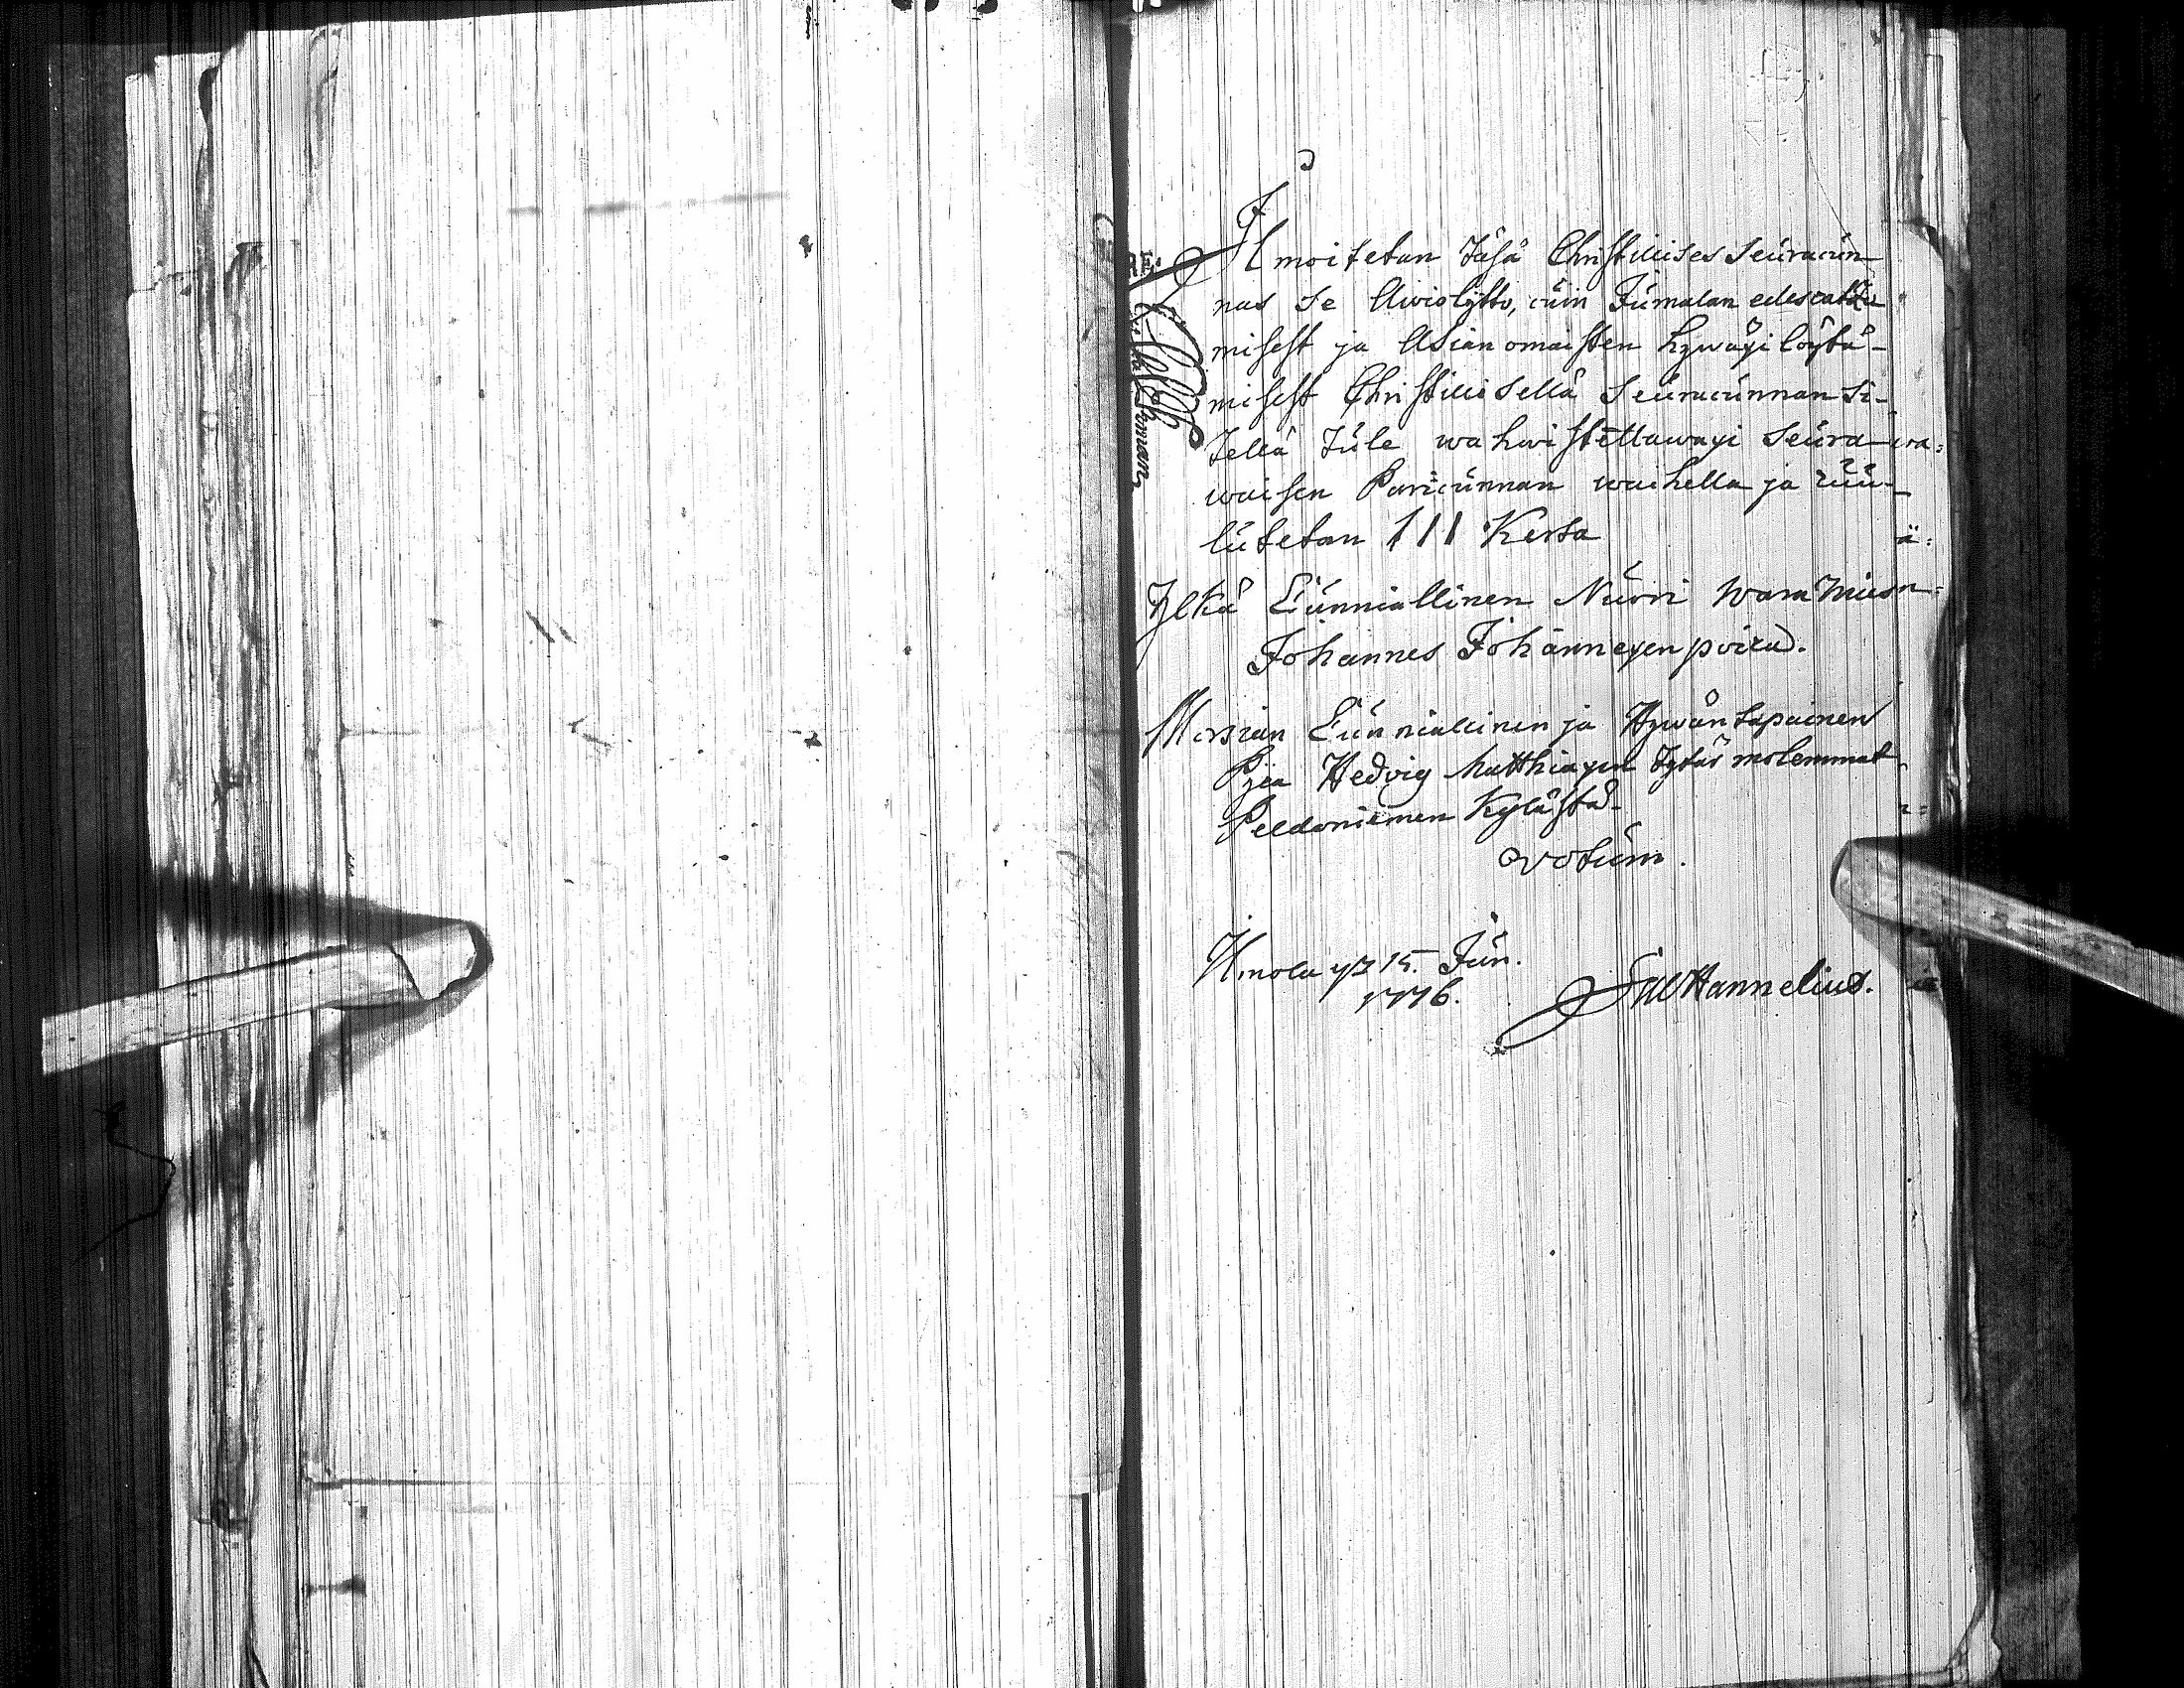 Ilmoitetan Täsä Christillises Seuracun-
nas se Awiolijtto, cuin Jumalan edescatzo
misest ja Asianomaisten hywäxi löytä-
misest Christillisellä Seuracunnan Si-
tellä Tule wahwistettawaxi Seura-
waisen Paricunnan waihella ja cuu-
lutetan 111 Kerta
Ylkä Cunniallinen Nuori Wara Mies
Johannes Johannexen poica.
Morsian Cunniallinen ja Hywäntapainen
Pjca Hedvig Matthiaxen Tytär molemmat
Peldoniemen Kylästä.
Votum.
Himola 15. Jun.
1776.
Hannelius.